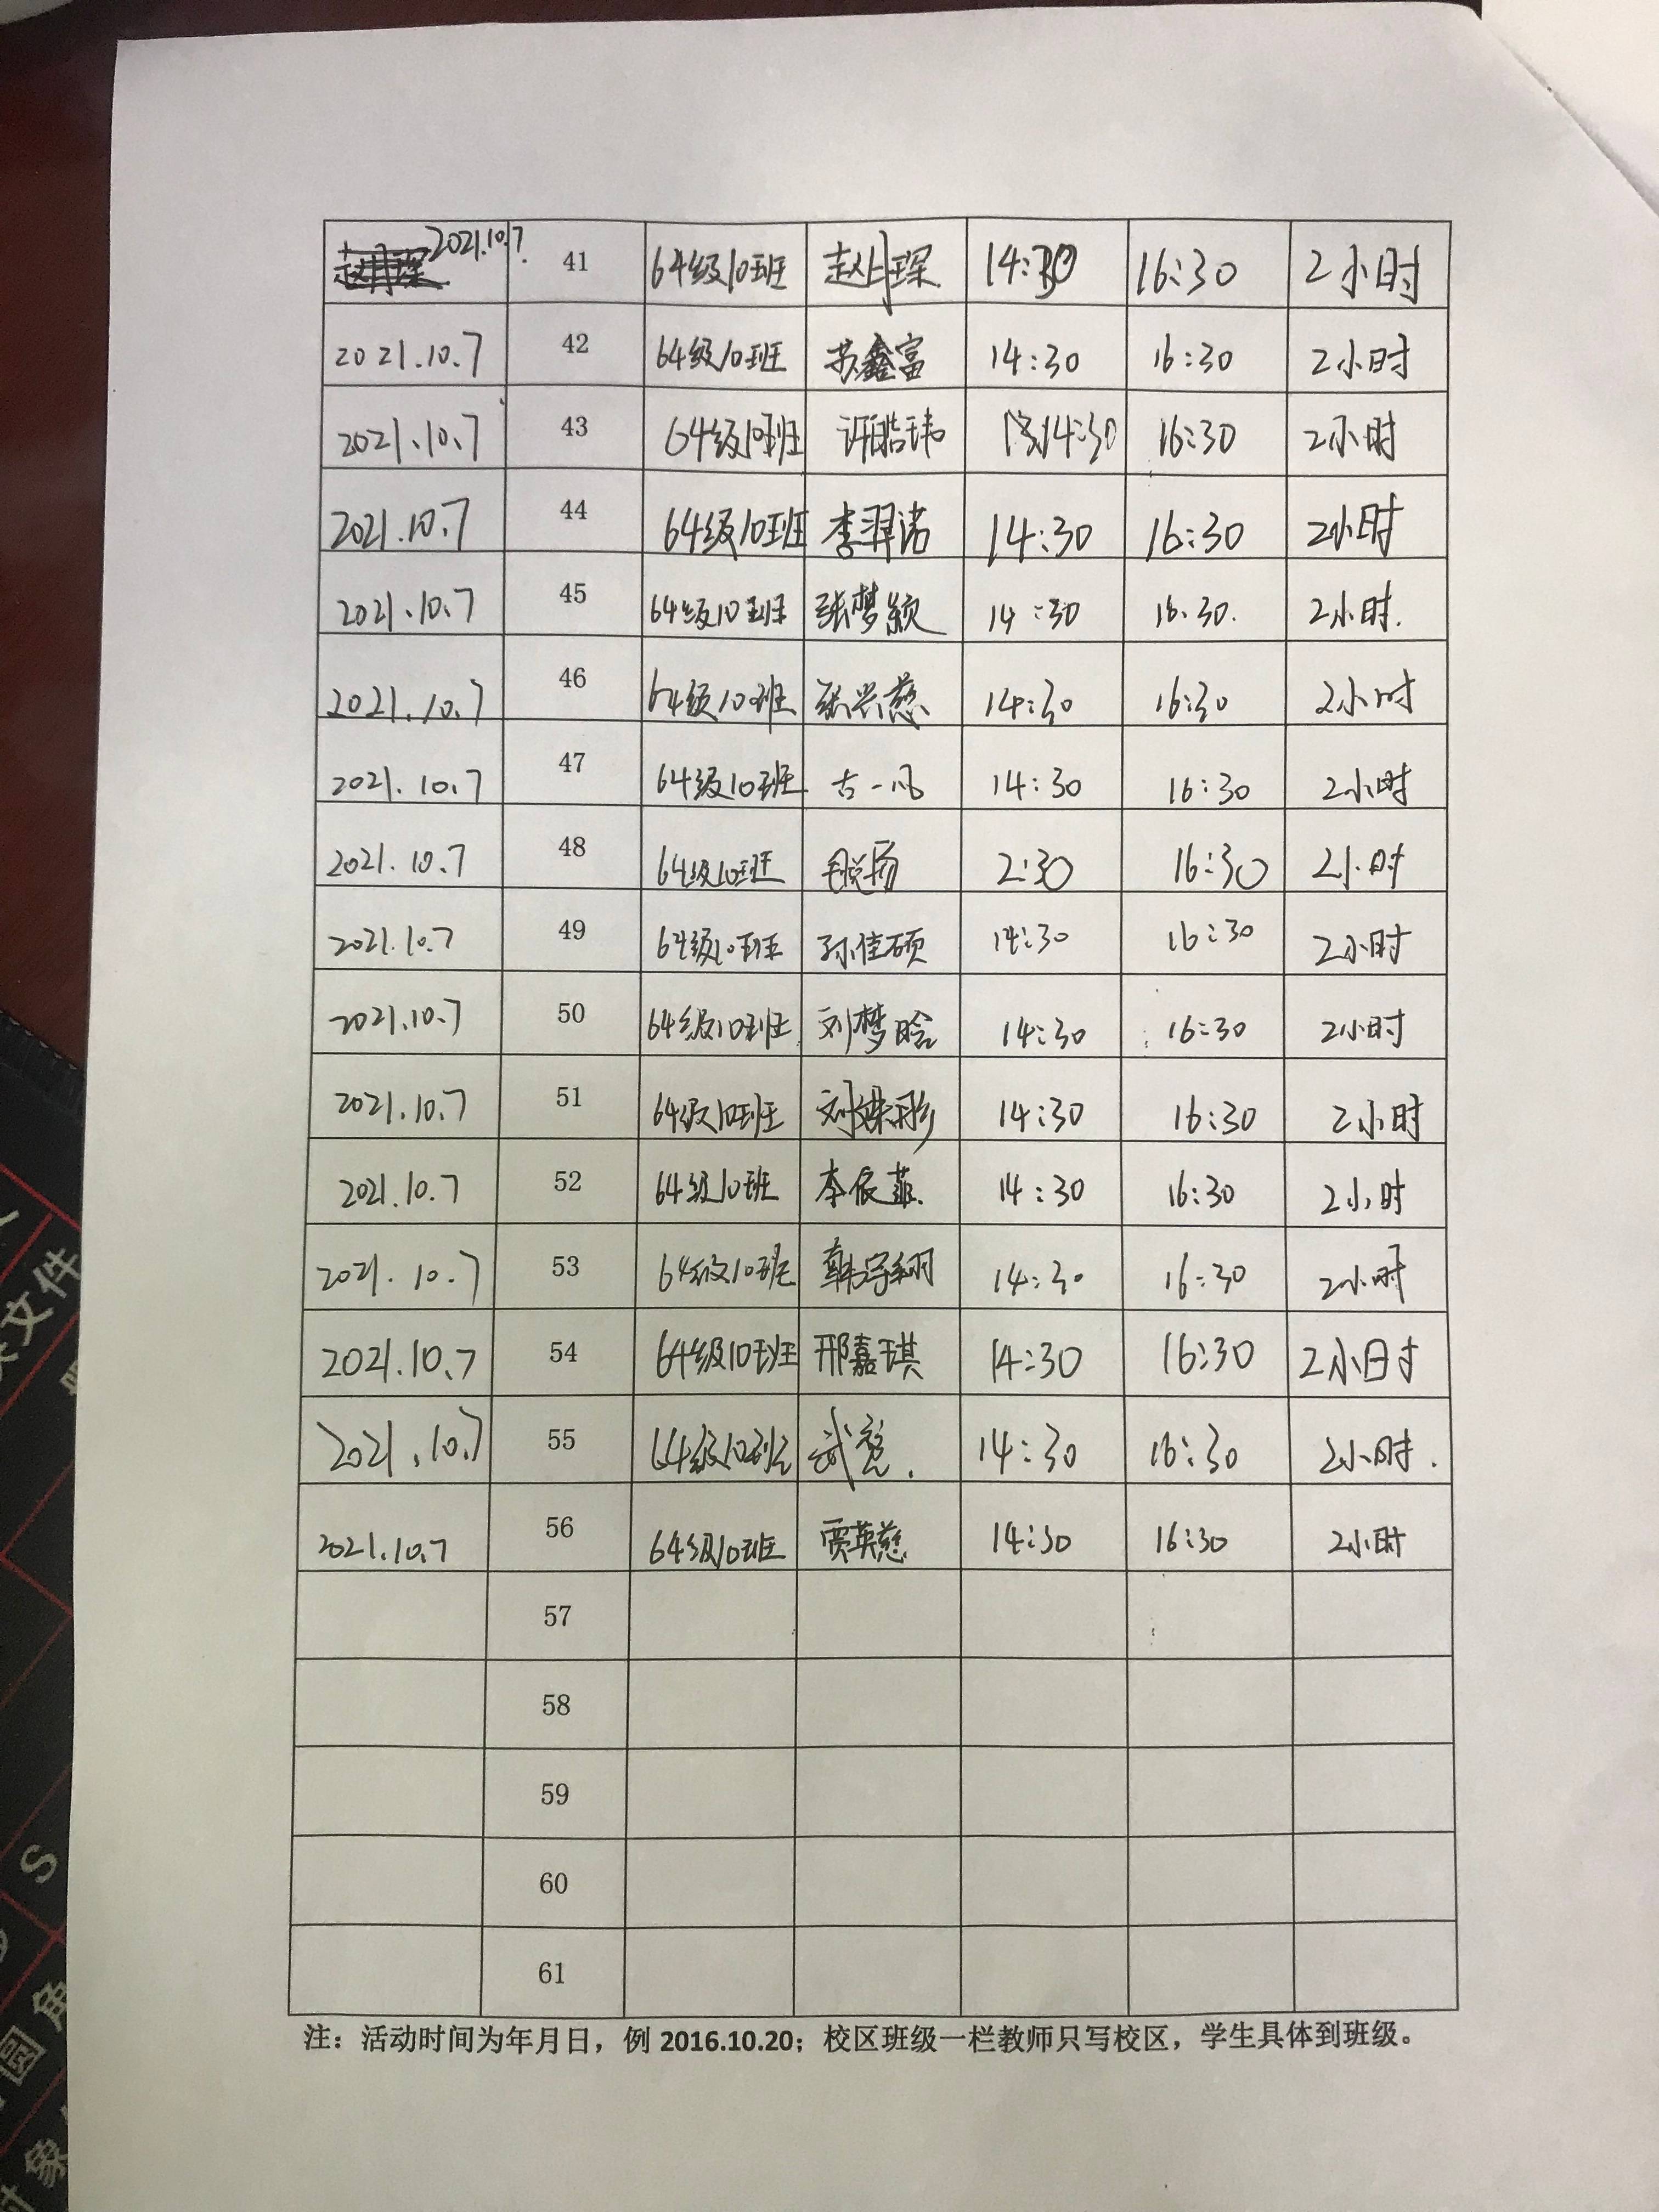 2021.10.7. 41 64级10班 14:30 16:30 2小时
2021.10.7 42 64级10班 苏鑫富 14:30 16:30 2小时
2021.10.7 43 64级10班 许皓玮 14:30 16:30 2小时
2021.10.7 44 64级10班 李羿诺 14:30 16:30 2小时
2021.10.7 45 64级10班 张梦颖 14:30 16:30. 2小时.
2021.10.7 46 64级10班 张兴慈 14:30 16:30 2小时
2021.10.7 47 64级10班 古一凡 14:30 16:30 2小时
2021.10.7 48 64级10班 毛悦扬 2:30 16:30 2小时
2021.10.7 49 64级10班 孙佳硕 14:30 16:30 2小时
2021.10.7 50 64级10班 刘梦晗 14:30 16:30 2小时
2021.10.7 51 64级10班 刘姝彤 14:30 16:30 2小时
2021.10.7 52 64级10班 李依菲. 14:30 16:30 2小时
2021.10.7 53 64级10班 韩宇翔 14:30 16:30 2小时
2021.10.7 54 64级10班 邢嘉琪 14:30 16:30 2小时
2021.10.7 55 64级10班 14:30 16:30 2小时.
2021.10.7 56 64级10班 贾英慈 14:30 16:30 2小时
57
58
59
60
61
注：活动时间为年月日，例 2016.10.20；校区班级一栏教师只写校区，学生具体到班级。
文件
S
圆角
对象